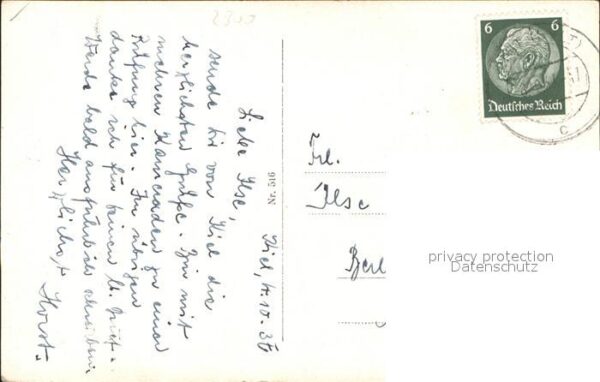 Kiel, 4.10.36
Liebe Ilse,
sende dir von Kiel die
herzlichsten Grüße. Bin mit
mehren Kameraden zu einer
Prüfung hier. Im übrigen
danke ich für deinen lb.
Werde bald ausführlich schreiben
Herzlichst
Horst.
Nr. 516
6 6
Deutsches Reich
c
Frl.
Ilse
Berl
privacy protection
Datenschutz